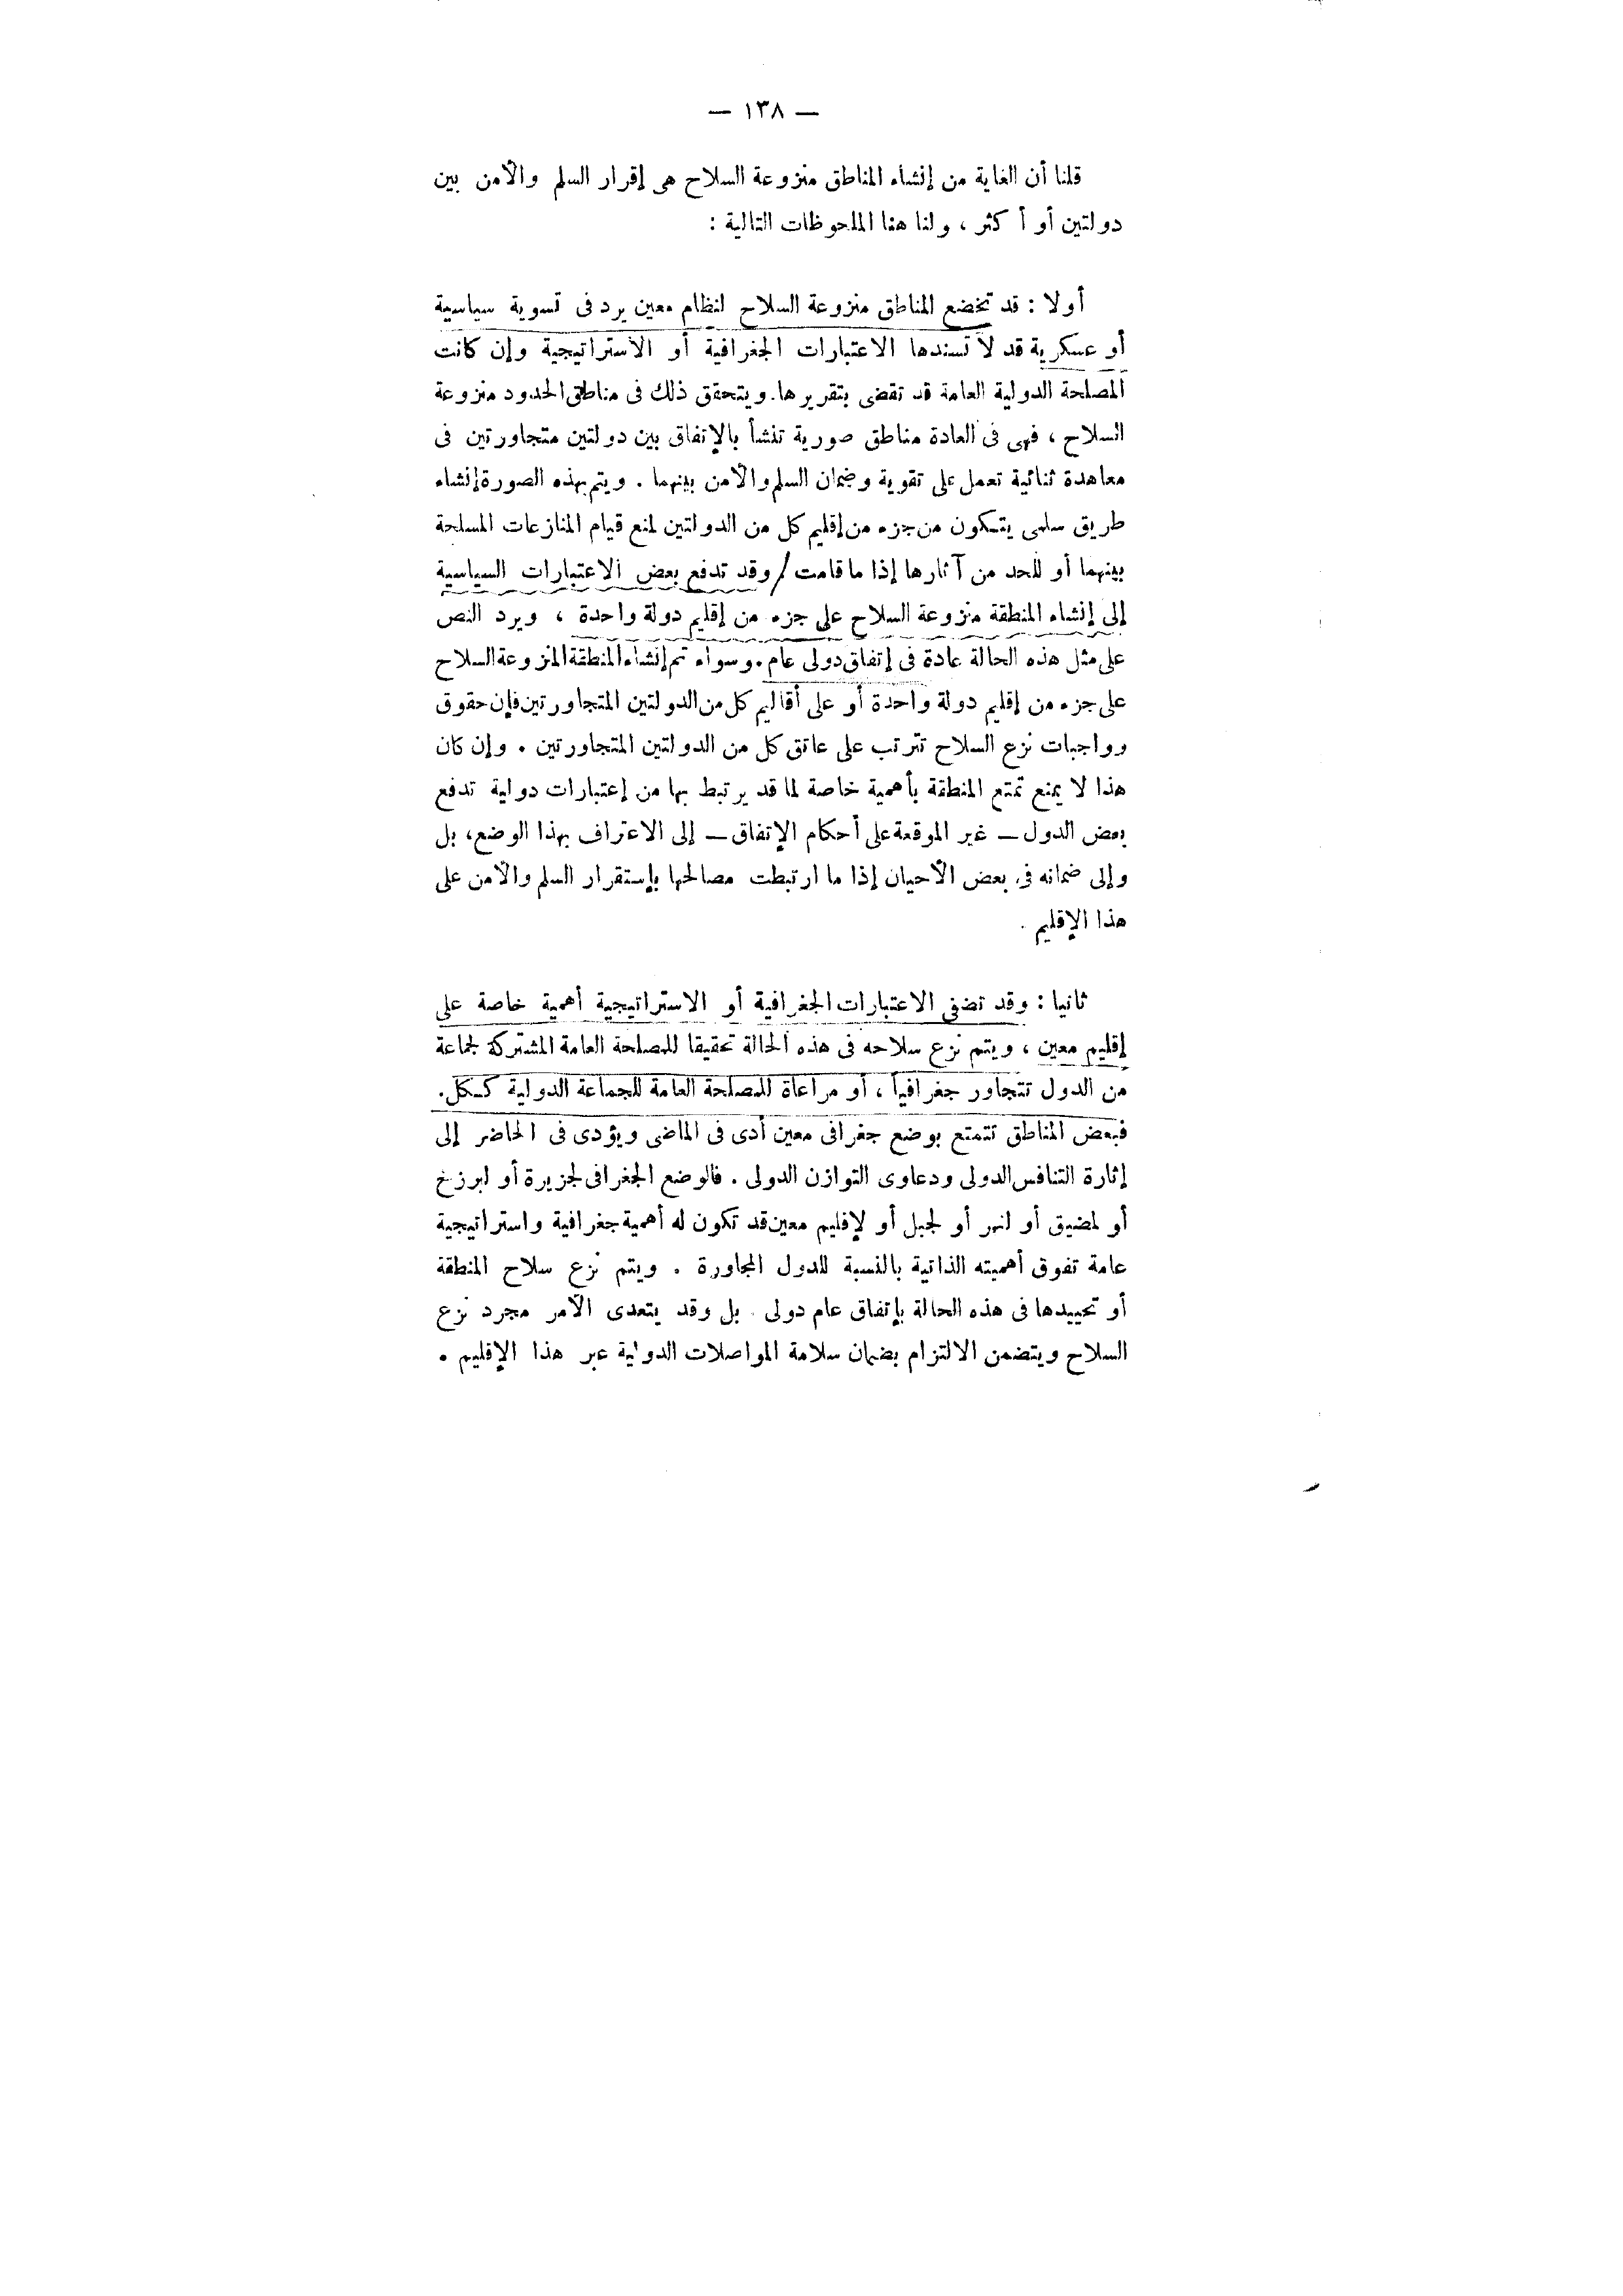 — ١٣٨ —
قلنا أن الغاية من إنشاء المناطق منزوعة السلاح هى إقرار السلم والأمن بين
دولتين أو أكثر ، ولنا هنا الملحوظات التالية :
أولا : قد تخضع المناطق منزوعة السلاح لنظام معين يرد فى تسوية سياسية
أو عسكرية قد لا تسندها الاعتبارات الجغرافية أو الأستراتيجية وإن كانت
المصلحة الدولية العامة قد تقضى بتقريرها. ويتحقق ذلك فى مناطق الحدود منزوعة
السلاح ، فهى فى العادة مناطق صورية تنشأ بالإتفاق بين دولتين متجاورتين فى
معاهدة ثنائية تعمل على تقوية وضمان السلم والأمن بينهما . ويتم بهذه الصورة إنشاء
طريق سلمى يتكون من جزء من إقليم كل من الدولتين لمنع قيام المنازعات المسلحة
بينهما أو للحد من آثارها إذا ما قامت / وقد تدفع بعض الاعتبارات السياسية
إلى إنشاء المنطقة منزوعة السلاح على جزء من إقليم دولة واحدة ، ويرد النص
على مثل هذه الحالة عادة فى إتفاق دولى عام . وسواء تم إنشاء المنطقة المنزوعة السلاح
على جزء من إقليم دولة واحدة أو على أقاليم كل من الدولتين المتجاورتين فإن حقوق
وواجبات نزع السلاح تترتب على عاتق كل من الدولتين المتجاورتين . وإن كان
هذا لا يمنع تمتع المنطقة بأهمية خاصة لما قد يرتبط بها من إعتبارات دولية تدفع
بعض الدول — غير الموقعة على أحكام الإتفاق — إلى الاعتراف بهذا الوضع، بل
وإلى ضمانه فى بعض الأحيان إذا ما ارتبطت مصالحها بإستقرار السلم والأمن على
هذا الإقليم .
ثانيا : وقد تضفى الاعتبارات الجغرافية أو الاستراتيجية أهمية خاصة على
إقليم معين ، ويتم نزع سلاحه فى هذه الحالة تحقيقا للمصلحة العامة المشتركة لجماعة
من الدول تتجاور جغرافياً ، أو مراعاة للمصلحة العامة للجماعة الدولية ككل .
فبعض المناطق تتمتع بوضع جغرافى معين أدى فى الماضى ويؤدى فى الحاضر إلى
إثارة التنافس الدولى ودعاوى التوازن الدولى . فالوضع الجغرافى لجزيرة أو لبرزخ
أو لمضيق أو لنهر أو لجبل أو لإقليم معين قد تكون له أهمية جغرافية واستراتيجية
عامة تفوق أهميته الذاتية بالنسبة للدول المجاورة . ويتم نزع سلاح المنطقة
أو تحييدها فى هذه الحالة بإتفاق عام دولى . بل وقد يتعدى الأمر مجرد نزع
السلاح ويتضمن الالتزام بضمان سلامة المواصلات الدولية عبر هذا الإقليم .